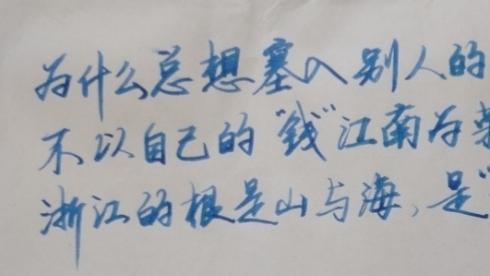 为什么总想塞入别人的
不以自己的“钱”江南为荣
浙江的根是山与海，是“